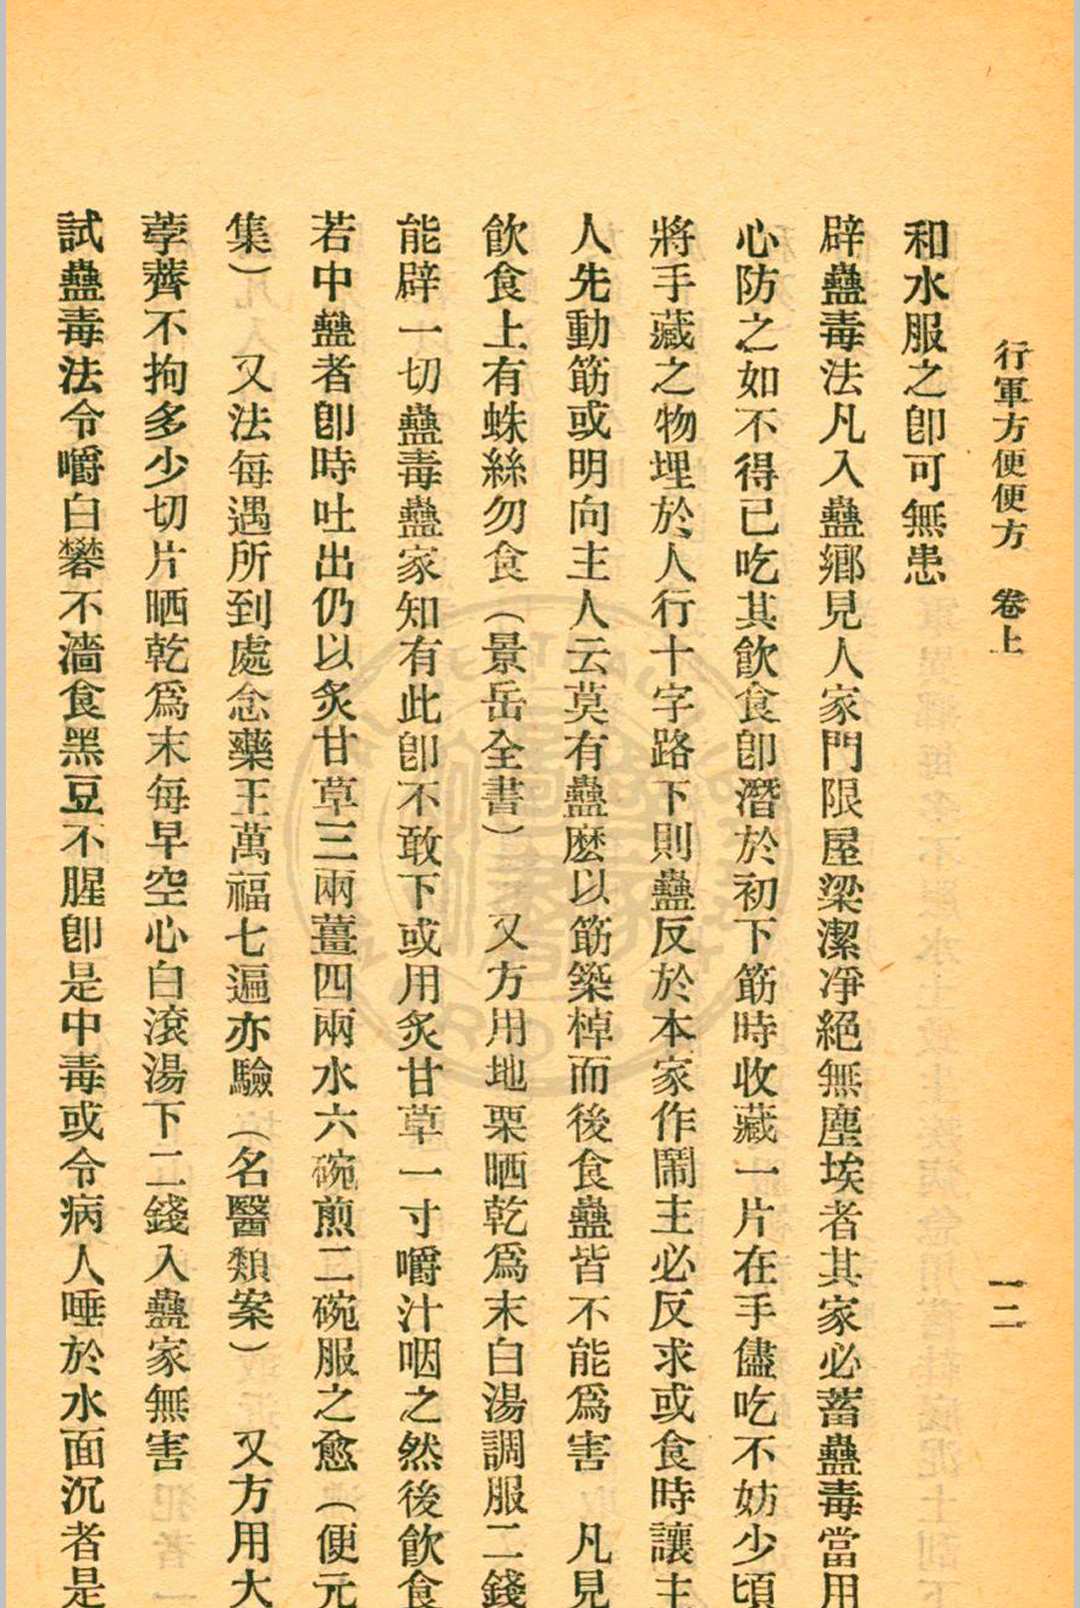 行軍方便便方　卷上
一二
和水服之卽可無患
辟蠱毒法凡入蠱鄉見人家門限屋梁潔凈絕無塵埃者其家必蓄蠱毒當用
心防之如不得已吃其飲食卽潛於初下筯時收藏一片在手儘吃不妨少頃
將手藏之物埋於人行十字路下則蠱反於本家作鬧主必反求或食時讓主
人先動筯或明向主人云莫有蠱麽以筯築棹而後食蠱皆不能爲害　凡見
飲食上有蛛絲勿食（景岳全書）　又方用地栗晒乾爲末白湯調服二錢
能辟一切蠱毒蠱家知有此卽不敢下或用炙甘草一寸嚼汁咽之然後飲食
若中蠱者卽時吐出仍以炙甘草三兩薑四兩水六碗煎二碗服之愈（便元
集）　又法每遇所到處念藥王萬福七遍亦驗（名醫類案）　又方用大
荸薺不拘多少切片晒乾爲末每早空心白滾湯下二錢入蠱家無害
試蠱毒法令嚼白礬不濇食黑豆不腥卽是中毒或令病人唾於水面沉者是